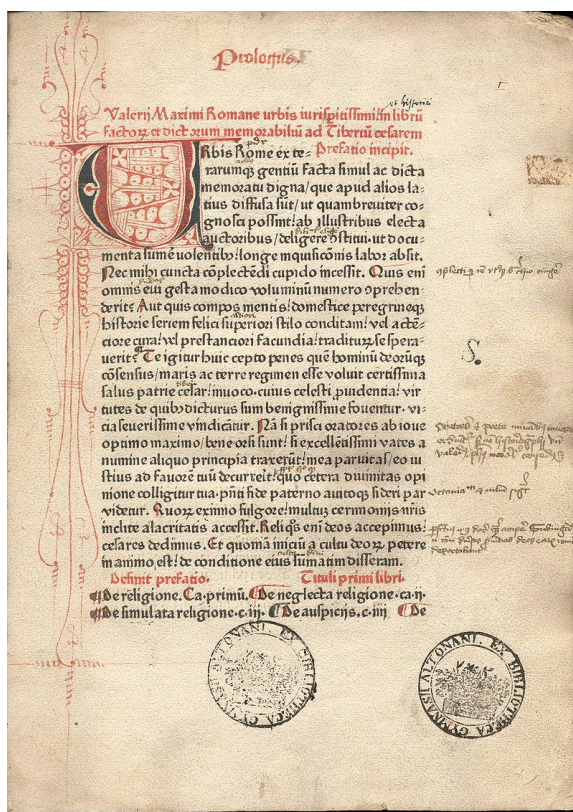 Prologus.
Valerij Maximi Romane urbis iurisperitissimi in librū
factoꝝ et dictorum memorabiliū ad Tiberiū cesarem
Prefatio incipit.
URbis Rome exte-
rarumqꝫ gentiū facta simul ac dicta
memoratu digna/ que apud alios la-
tius diffusa sūt/ ut quambreuiter co-
gnosci possint: ab illustribus electa
auctoribus/ deligere ꝯstitui: ut docu-
menta sumē uolentibꝰ: longe inquisicōnis labor absit.
Nec mihi cuncta cōplectēdi cupido incessit. Quis eni
omnis eui gesta modico voluminū numero ꝯprehen-
derit? Aut quis compos mentis: domestice peregrineqꝫ
historie seriem felici superiorū stilo conditam: vel actē-
ciore cura: vel prestanciori facundia: traditurū se spera-
uerit? Te igitur huic cepto penes quē hominū deorūqꝫ
cōsensus/ maris ac terre regimen esse voluit certissima
salus patrie cesar: inuoco. cuius celesti ꝓuidentia: vir
tutes de quibꝰ dicturus sum benignissime fouentur. vi-
cia seuerissime vindicātur. Nā si prisci oratores ab ioue
optimo maximo/ bene orsi sunt: si excellētissimi vates a
numine aliquo principia traxerūt: mea paruitas/ eo iu
stius ad fauorē tuū decurrerit: quo cetera diuinitas opi
nione colligitur tua. pñti fide paterno auitoqꝫ sideri par
videtur. Quoꝝ eximio fulgore: multū cerimonijs nr̄is
inclite alacritatis accessit. Reliqꝰs eni deos accepimus:
cesares dedimus. Et quoniā iniciū a cultu deoꝝ petere
in animo est: de conditione eius summatim disseram.
Definit prefatio. Tituli primi libri.
De religione. Ca. primū. De neglecta religione. ca. ij.
De simulata religione. c. iij. De auspicijs. c. iiij De
EX BIBLIOTHECA GYMNASII ALTONANI.
EX BIBLIOTHECA GYMNASII ALTONANI.